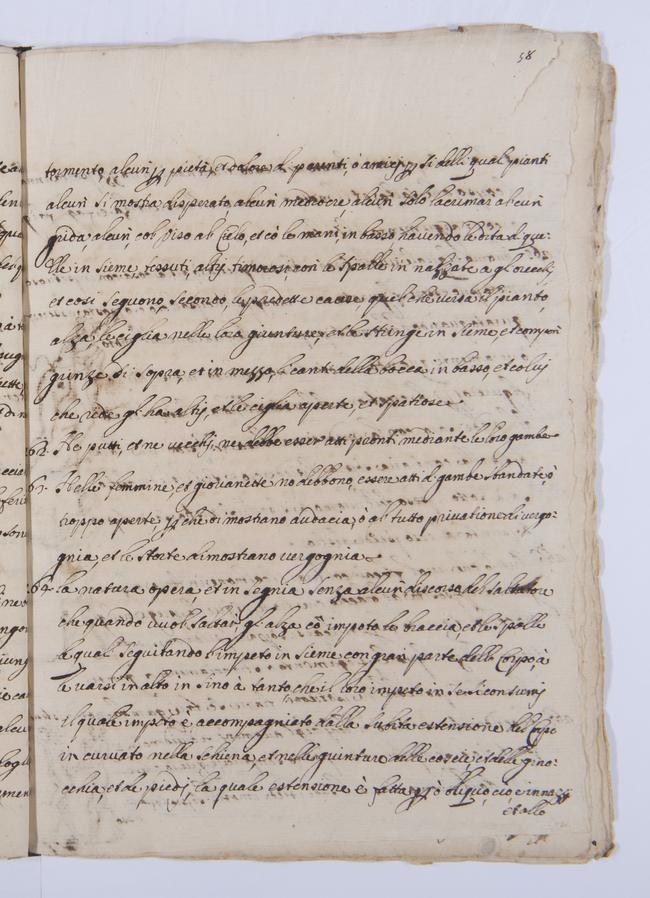 58
tormento, alcun p pietà, et dolore di parenti, ò amici, p li delli quali pianti
alcun si mostra disperato, alcun mediocre, alcun solo lacrimar alcun
grida, alcun col viso al Cielo, et cò le mani in basso, havendo le dita di que-
lle in sieme tessuti, altri timorosi, con le spalle in nalzate a gl'orecchi,
et cosi seguono, secondo, le predette cause, quel che versa il pianto,
alza le ciglia nelle loro giunture, et le stringe in sieme, et compon
grinze di sopra, et in mezzo, li canti della bocca in basso, et colui
che ride gl'ha alti, et le ciglia aperte, et spatiose
62. Ne putti, et ne vecchi, ne debbe esser atti pronti mediante le loro gambe
63. Nelle femmine, et giovanette nò debbono, essere atti di gambe sbandate, ò
troppo aperte, p che dimostrano audacia, ò al tutto privatione di vergo-
gnia, et le storte dimostrano vergognia
64. la natura opera, et in segnia senza alcun discorso del saltatore
che quando vuol saltar, gl'alza cò impeto le braccia, et le spalle
le quali seguitando l'impeto in sieme con gran parte dello Corpo à
levarsi in alto in sino à tanto, che il loro impeto in se si consumi
il quale impeto è accompagniato dalla subita estensione del Corpo
in curvato nella schiena, et nelle giunture delle coscie et delle gino-
cchia, et de piedi, la quale estensione è fatta p obliquo, cio è innazi
et allo